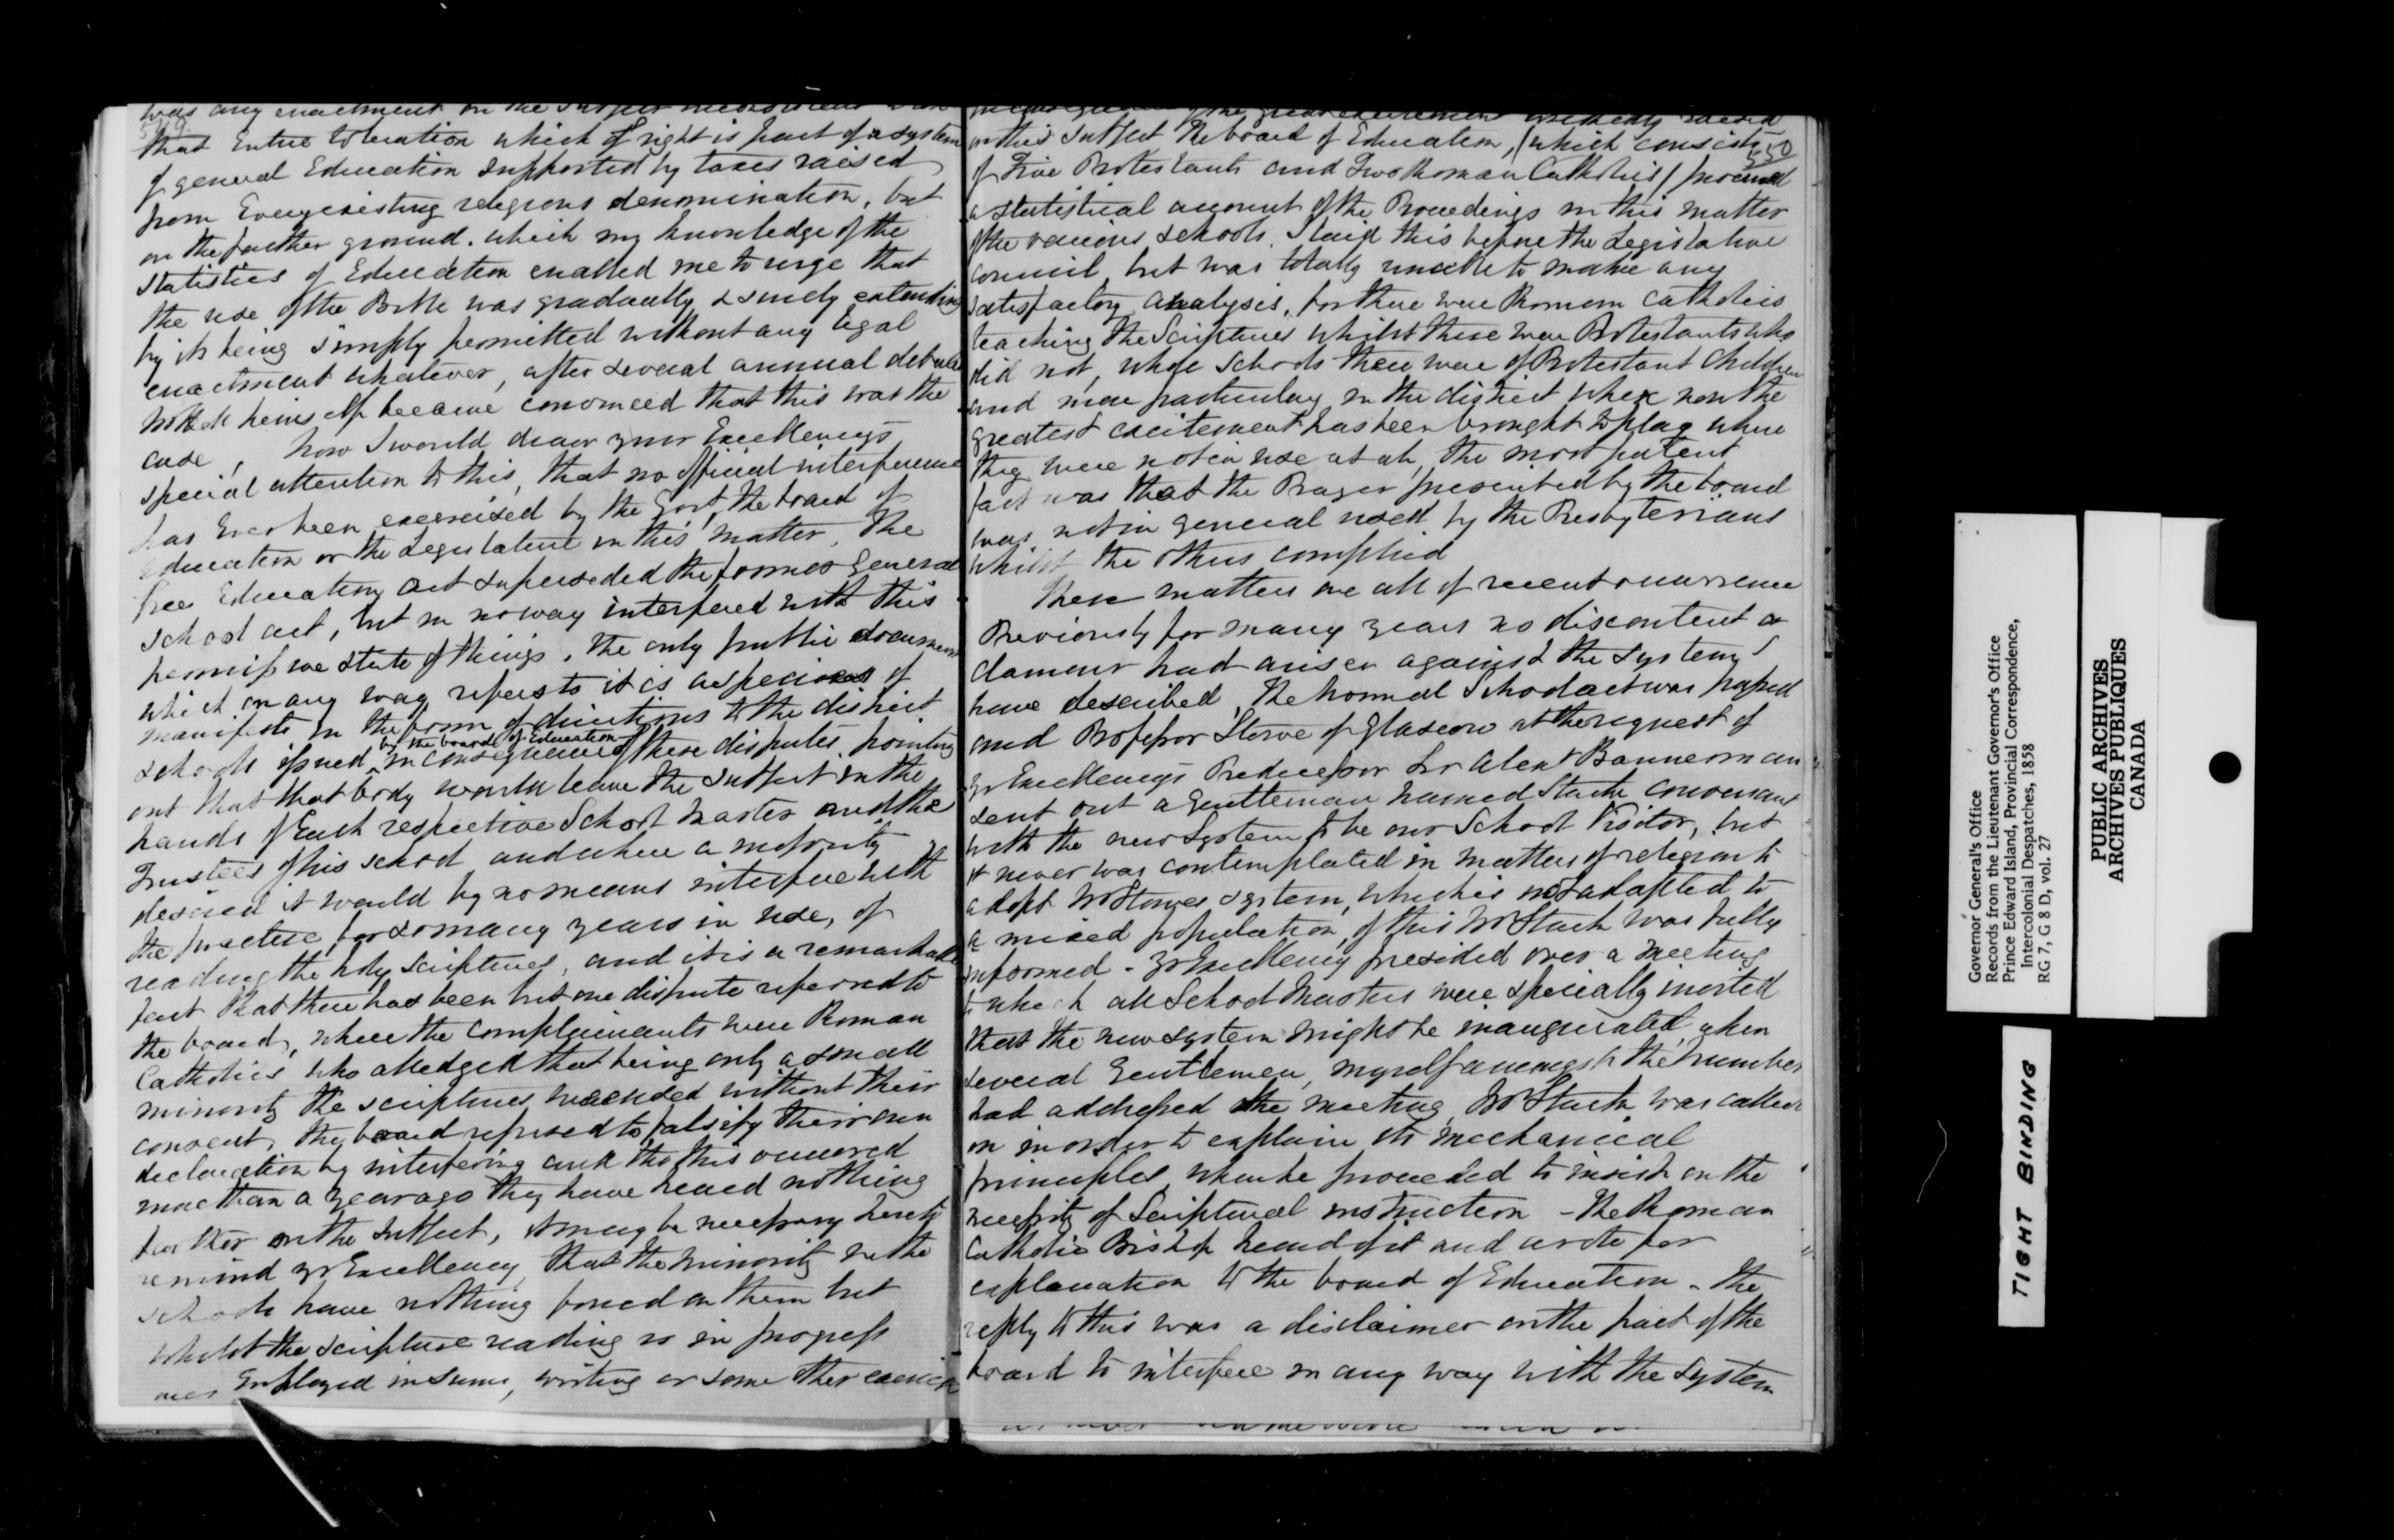 was any enactment on the subject
549
that entire toleration which of right is part of a system
of general Education supported by taxes raised
from Every existing religious denomination, but
on the further ground. which my knowledge of the
statistics of Education enabled me to urge that
the use of the Bible was gradually & surely extending
by its being simply permitted without any legal
enactment whatever, after several annual debates
himself became convinced that this was the
case, Now I would draw your Excellency's
special attention to this, that no official interference
has Ever been exercised by the Govt, the board of
Education or the Legislature in this matter. The
free Education act superseded the former General
School act, but in no way interfered with this
permissive state of things. The only public document
which in any way refers to it is a species of
manifesto in the form of directions to the district
by the board of Education
schools issued in consequence of these disputes pointing
out that that body would leave the subject in the
hands of Each respective School Master and the
Trustees of his school and where a majority
desired it would by no means interfere with
the practice, for so many years in use, of
reading the holy scriptures, and it is a remarkable
fact that there has been but one dispute referred to
the board, where the complainants were Roman
Catholics who alledged that being only a small
minority the scriptures were used without their
consent, the board refused to falsify their own
declaration by interfering and tho this occurred
more than a year ago they have heard nothing
further on the subject, it may be necessary here to
remind yr Excellency that the minority in the
schools have nothing forced on them but
whilst the scripture reading is in progress
are Employed in sums, writing or some other exercise
of the great excitement raised
550
on this subject the board of Education, (which consists
of Five Protestants and Two Roman Catholics) procured
a statistical account of the Proceedings in this matter
of the various schools. I laid this before the Legislative
council, but was totally unable to make any
satisfactory analysis, for there were Roman Catholics
teaching the Scriptures whilst there were Protestants who
did not, whole schools there were of Protestant Children
and more particularly in the district where now the
greatest excitement has been brought to play where
they were not in use at all, the most patent
fact was that the Prayer prescribed by the board
was not in general used by the Presbyterians
whilst the others complied
These matters are all of recent occurrence
Previously for many years no discontent or
clamour had arisen against the system I
have described, The Normal School act was passed
and Professor Stowe of Glasgow at the request of
Yr Excellency's Predecessor Sir Alexr Bannerman
sent out a Gentleman named Stark conversant
with the new system to be our School Visitor, but
it never was contemplated in matters of religion to
adopt Mr Stowes system, which is not adapted to
a mixed population, of this Mr Stark was fully
informed - Yr Excellency presided over a meeting
to which all School Masters were specially invited
that the new system might be inaugurated, when
several Gentlemen, myself amongst the number
had addressed the meeting Mr Stark was called
on in order to explain its mechanical
principles, when he proceeded to insist on the
necessity of Scriptural instruction - The Roman
Catholic Bishop heard of it and wrote for
explanation to the board of Education - the
reply to this was a disclaimer on the part of the
board to interfere in any way with the system
Governor General's Office
Records from the Lieutenant Governor's Office
Prince Edward Island, Provincial Correspondence,
Intercolonial Despatches, 1858
RG 7, G 8 D, vol. 27
PUBLIC ARCHIVES
ARCHIVES PUBLIQUES
CANADA
TIGHT BINDING